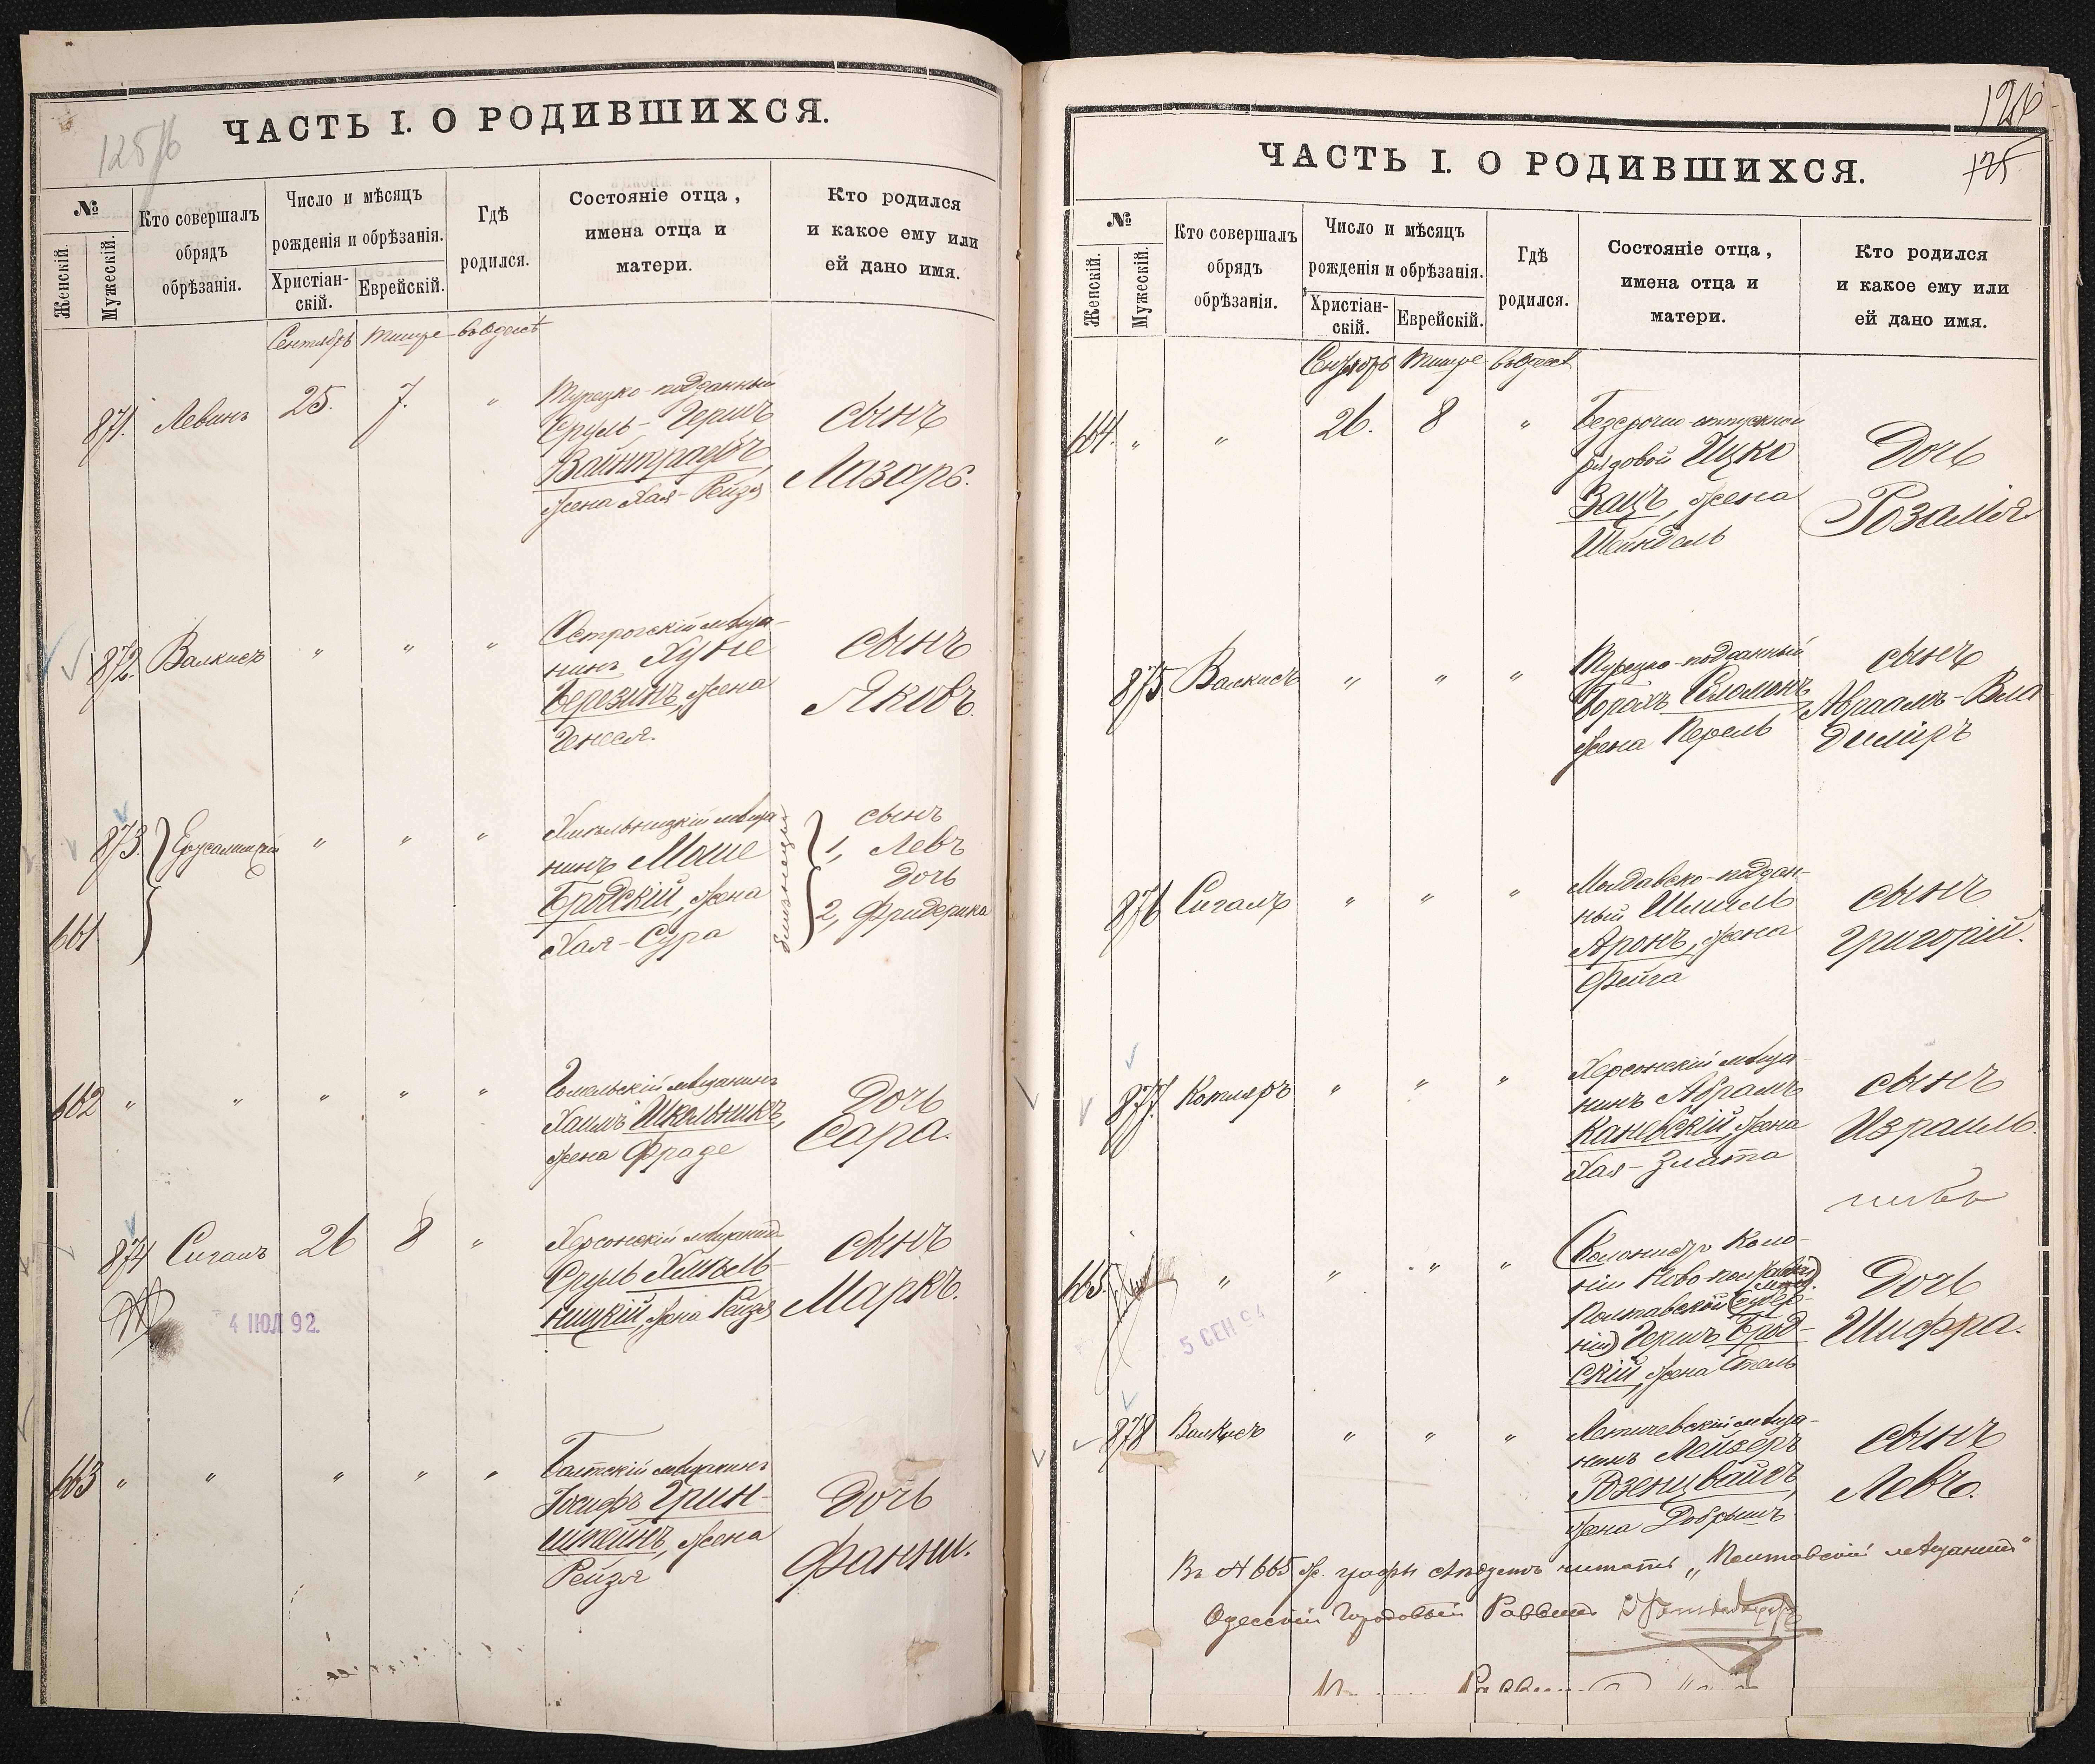 125/6
ЧАСТЬ I. О РОДИВШИХСЯ.
№
Женскій.
Мужескій.
Кто совершалъ
обрядъ
обрѣзанія.
Число и мѣсяцъ
рожденія и обрѣзанія.
Христіан-
скій.
Еврейскій.
Гдѣ
родился.
Состояніе отца,
имена отца и
матери.
Кто родился
и какое ему или
ей дано имя.
Сентябрь Тишре въ Одессѣ
871. Левинъ 25. 7. "
Турецко-подданный
Сруль-Гершъ
Вайнтраубъ,
жена Хая-Рейзя
сынъ
Лазарь.
872. Валкисъ " " "
Острогскій мѣща-
нинъ Хуне
Березинъ, жена
Генеся.
сынъ
Яковъ.
873. Ерусалимскій " " "
661
Хмѣльницкій мѣща
нинъ Моше
Бродскій, жена
Хая-Сура
близнецы
сынъ
1, Левъ
дочь
2, Фридерика
662 " " " " "
Гомельскій мѣщанинъ
Хаимъ Школьникъ,
жена Фраде
Дочь
Сара.
874 Сигалъ 26 8 "
Херсонскій мѣщанинъ
Сруль Хмѣль-
ницкій, жена Рейзя
сынъ
Маркъ.
4 ІЮЛ 92
663 " " " " "
Балтскій мѣщанинъ
Іосифъ Грин-
штейнъ, жена
Рейзя
Дочь
Фанни.
126
125
ЧАСТЬ I. О РОДИВШИХСЯ.
№
Женскій.
Мужескій.
Кто совершалъ
обрядъ
обрѣзанія.
Число и мѣсяцъ
рожденія и обрѣзанія.
Христіан-
скій.
Еврейскій.
Гдѣ
родился.
Состояніе отца,
имена отца и
матери.
Кто родился
и какое ему или
ей дано имя.
Сентябрь Тишре въ Одессѣ
664. " " 26. 8 "
Безсрочно-отпускной
рядовой Ицко
Зацъ, жена
Шейндель
Дочь
Розалія
875 Валкисъ " " "
Турецко-подданный
Борахъ Соломонъ,
жена Перель
сынъ
Авраамъ-Вла
димиръ
876 Сигалъ " " "
Молдавско-поддан-
ный Шмиль
Аронъ, жена
Фейга
сынъ
Григорій.
877. Котляръ " " "
Херсонскій мѣща-
нинъ Абрамъ
Каневскій, жена
Хая-Злата
сынъ
Израиль.
665. " " " "
(Колонистъ Коло-
ніи Ново-
Полтавской
ніи) Гершъ Брод-
скій, жена Етель
Дочь
Шифра.
5 СЕН 94
878 Валкисъ " " "
Летичевскій мѣща-
нинъ Лейзеръ
Розенцвайгъ,
жена Добрышъ
сынъ
Левъ.
Въ № 665 графѣ слѣдуетъ читать „Полтавскій мѣщанинъ"
Одесскій Городовый Раввинъ